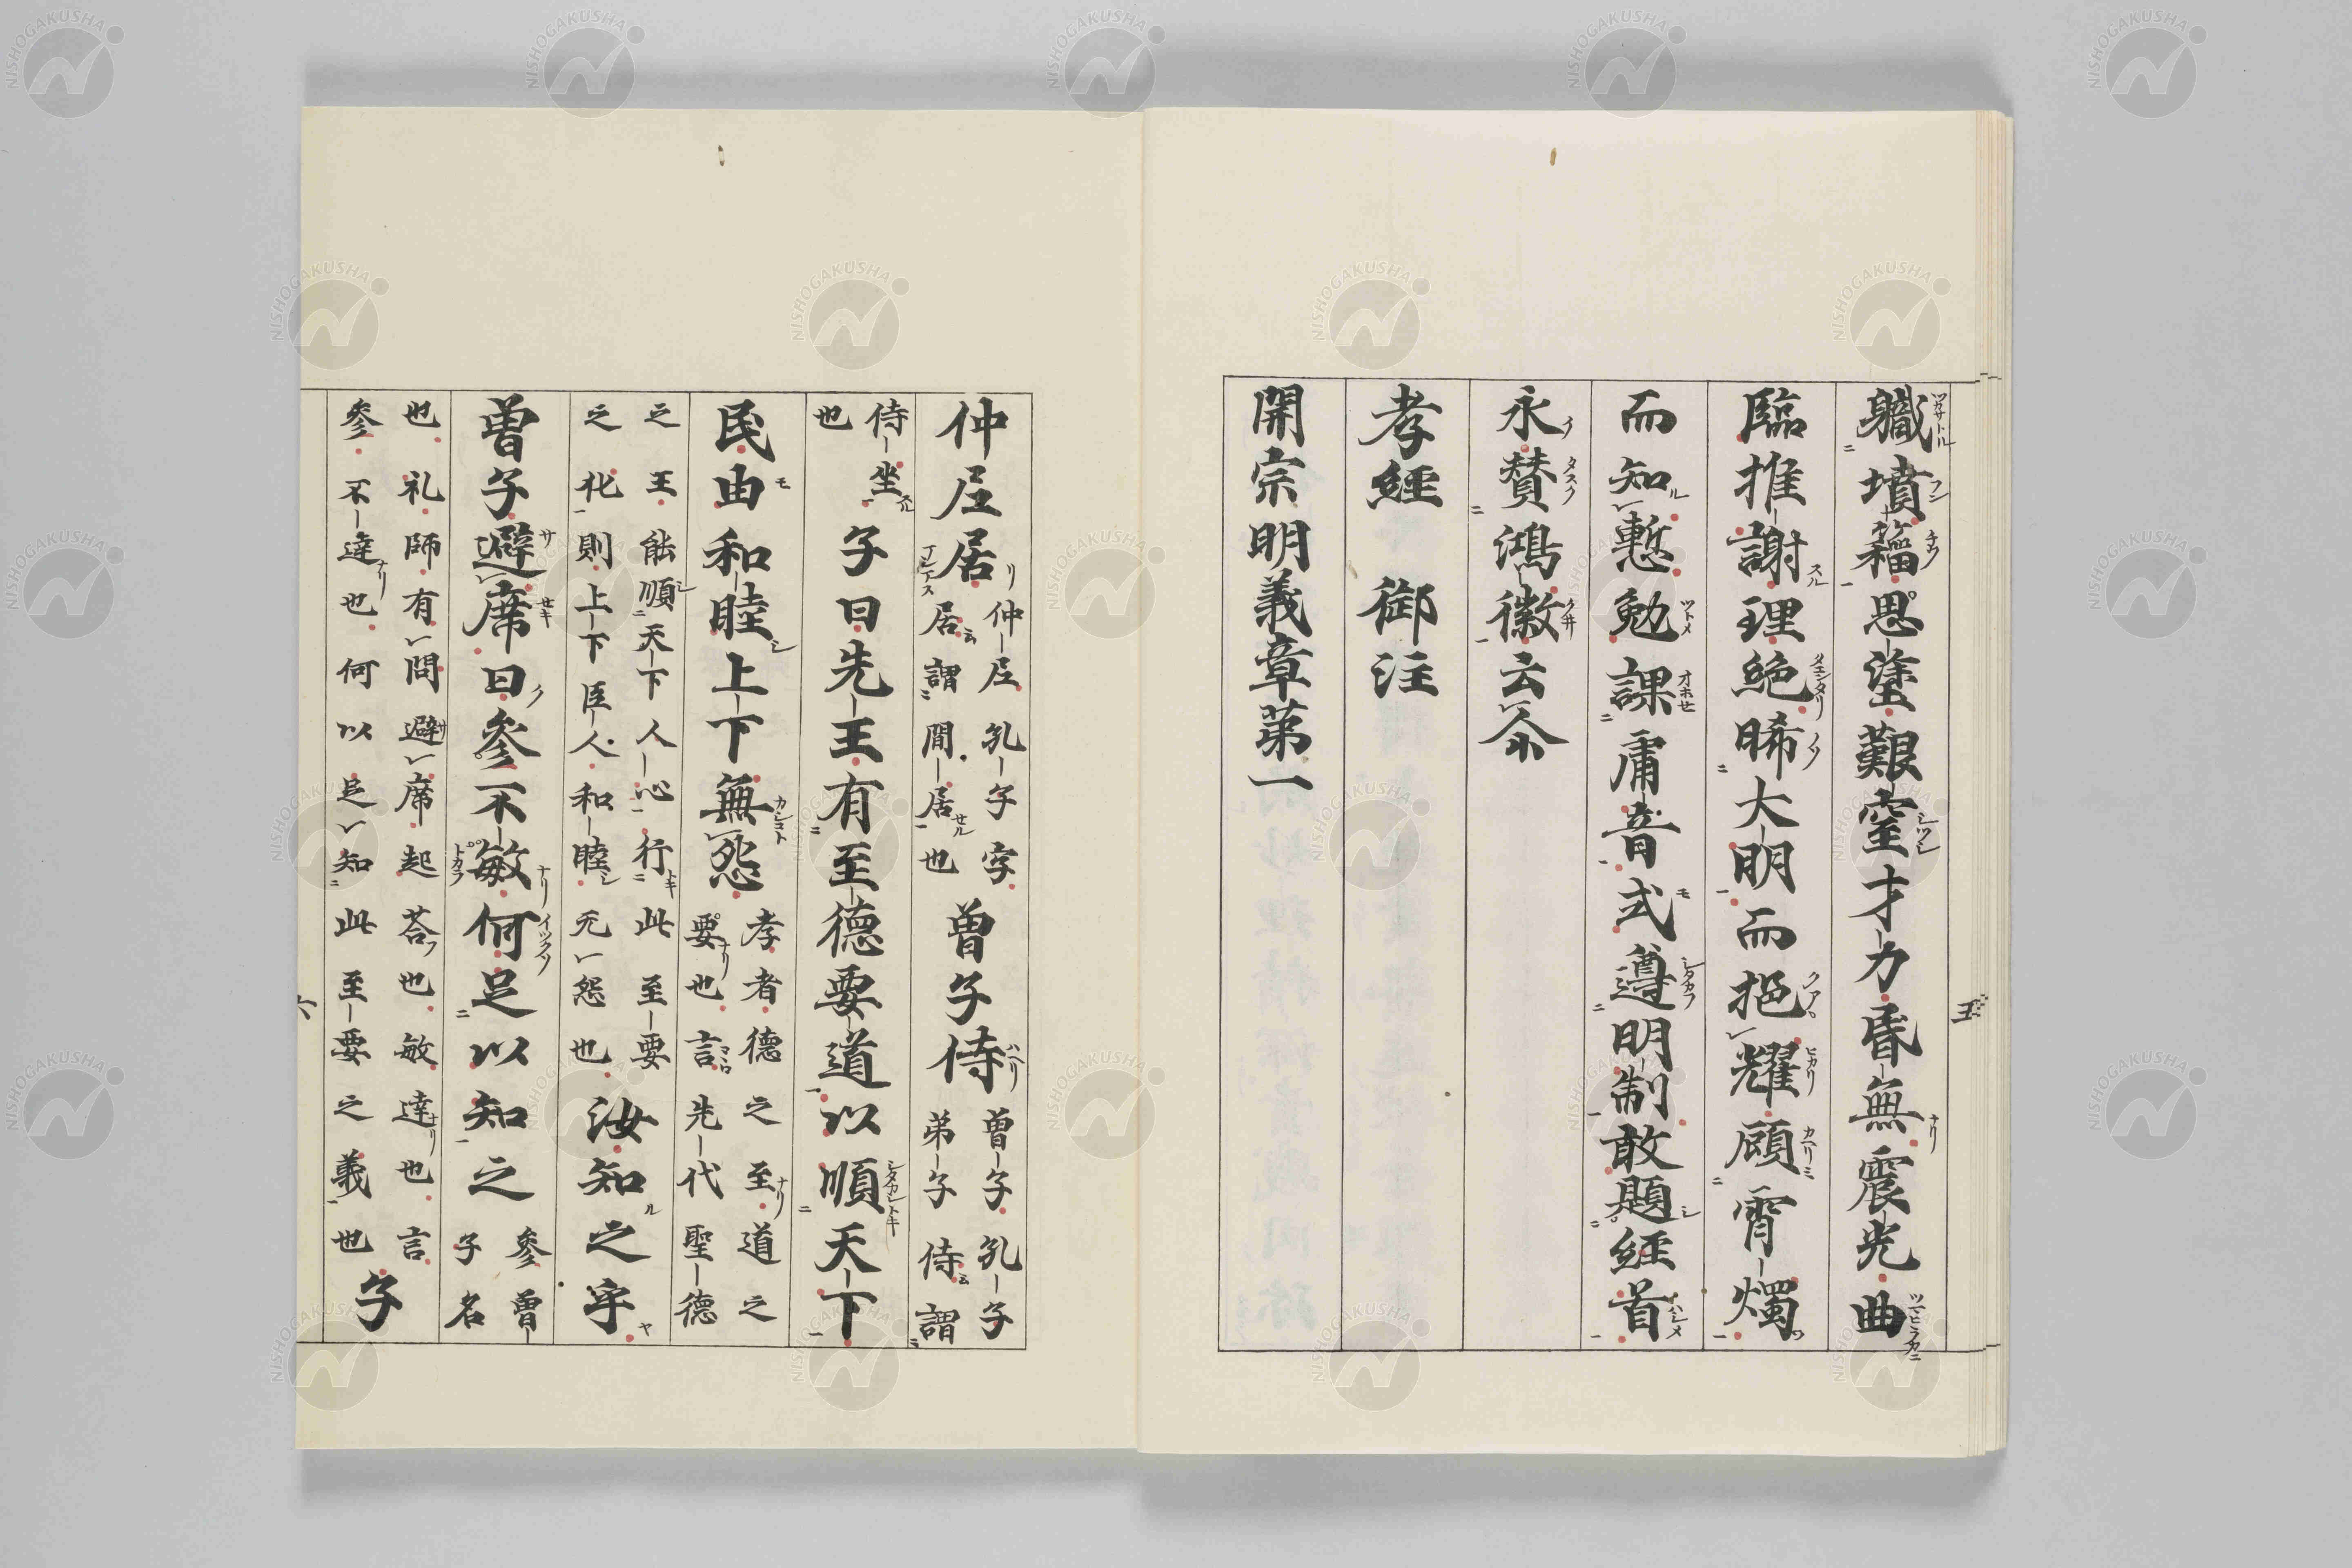 職墳籍思塗艱窒才力昏無震光曲
臨推謝理絶晞大明而挹耀顧霄燭
而知慙勉課庸音式遵明制敢題經首
永賛鴻徽云尒
孝經 御注
開宗明義章第一
五
仲尼居
仲尼孔子字
居謂間居也
曽子侍
曽子孔子
弟子侍謂
侍坐
也
子曰先王有至德要道以順天下
民由和睦上下無怨
孝者德之至道之
要也言先代聖德
之王能順天下人心行此至要
之化則上下臣人和睦无怨也
汝知之乎
曽子避席曰參不敏何足以知之
參曽
子名
也礼師有問避席起荅也敏達也言
參不達也何以足知此至要之義也
子
六
NISHOGAKUSHA